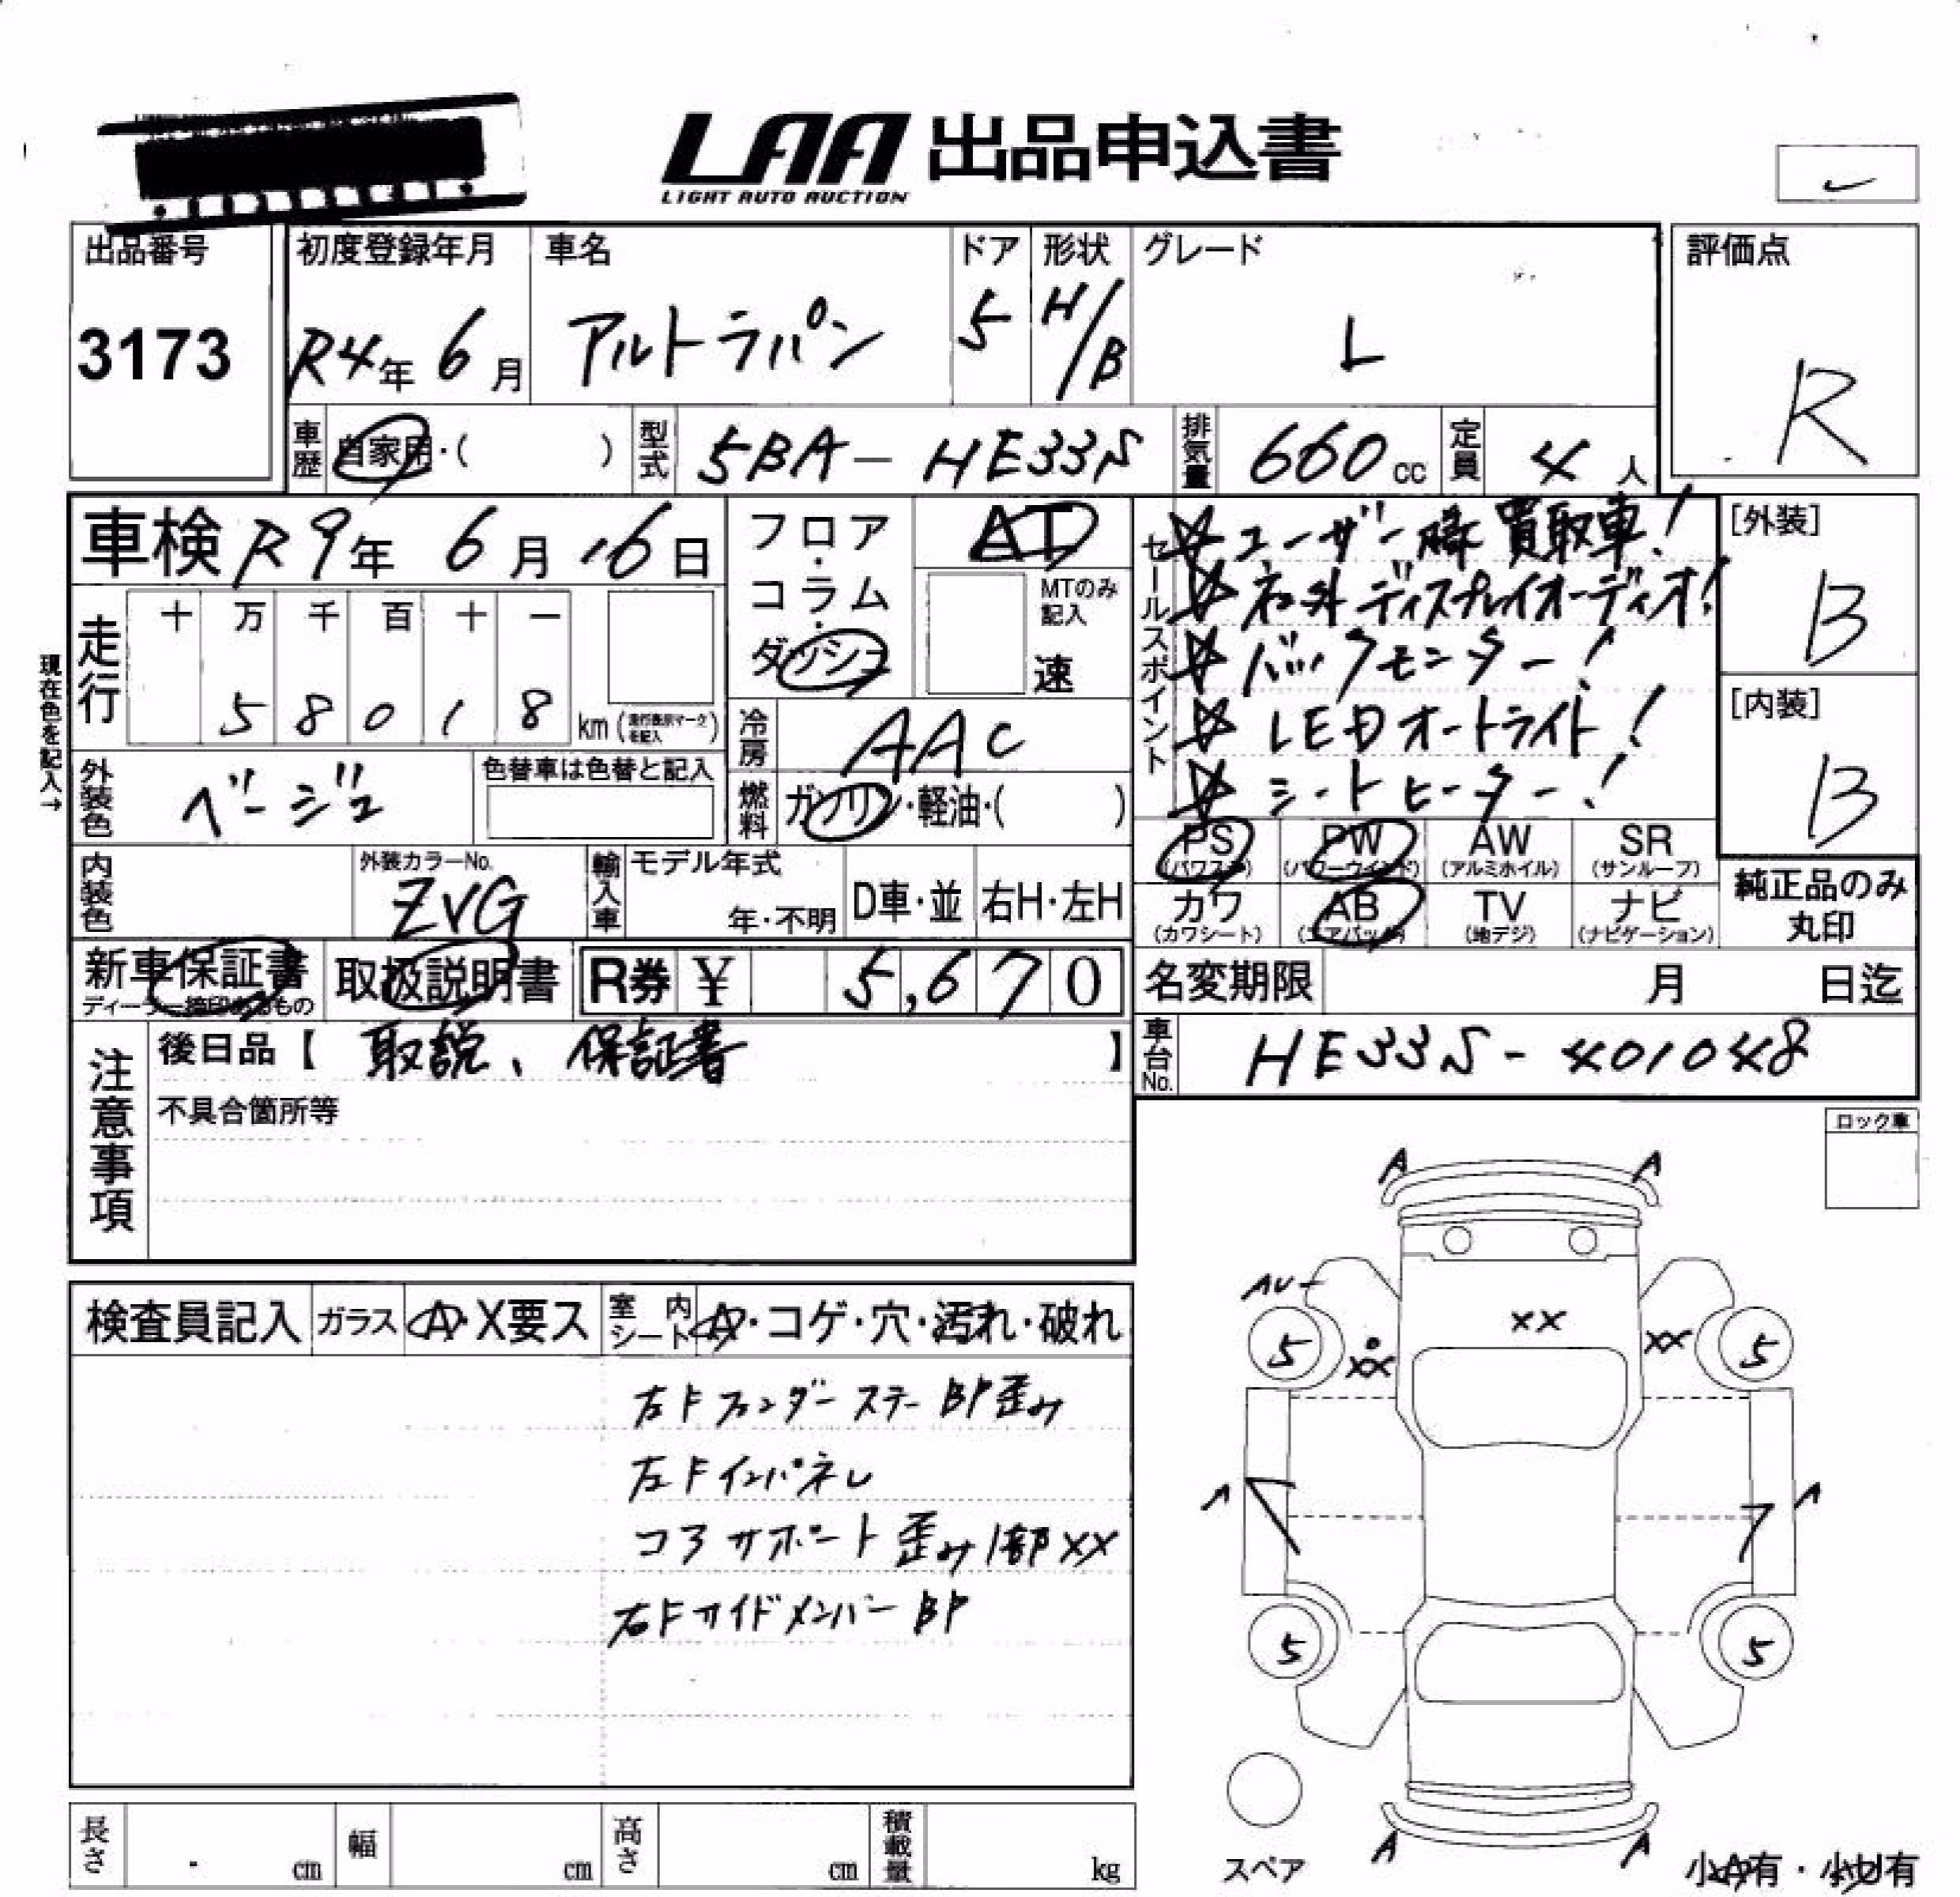 LAA 出品申込書
LIGHT AUTO AUCTION
出品番号 初度登録年月 車名 ドア 形状 グレード 評価点
3173 R4年 6月 アルトラパン 5 H/B L R
車歴 自家用・( ) 型式 5BA-HE33S 排気量 660cc 定員 4人
車検 R9年 6月 16日 フロア・コラム・ダッシュ AT セールスポイント [外装]
☆ユーザー様買取車! B
MTのみ記入 速
☆社外ディスプレイオーディオ!
☆バックモニター!
☆LEDオートライト!
☆シートヒーター!
[内装]
B
現在色を記入→
走行 十 万 千 百 十 一
5 8 0 1 8 km (走行表示マークを記入)
冷房 AAC
外装色 ベージュ 色替車は色替と記入 燃料 ガソリン・軽油・( )
PS (パワステ) PW (パワーウインド) AW (アルミホイル) SR (サンルーフ)
内装色 外装カラーNo. ZVG 輸入車 モデル年式 年・不明 D車・並 右H・左H
カワ (カワシート) AB (エアバック) TV (地デジ) ナビ (ナビゲーション) 純正品のみ丸印
新車保証書 取扱説明書 R券 ¥ 5,670 名変期限 月 日迄
ディーラー捺印あるもの
注意事項 後日品【 取説、保証書 】 車台No. HE33S-401048
不具合箇所等
ロック車
検査員記入 ガラス A・X要ス 室内シート A・コゲ・穴・汚れ・破れ
右Fフェンダーステー BP歪み
左Fインパネレ
コアサポート歪み1部XX
右FサイドメンバーBP
A A
AU-
XX
5 XX XX 5
A A
5 5
A A
スペア 小A有・小U有
長さ cm 幅 cm 高さ cm 積載量 kg